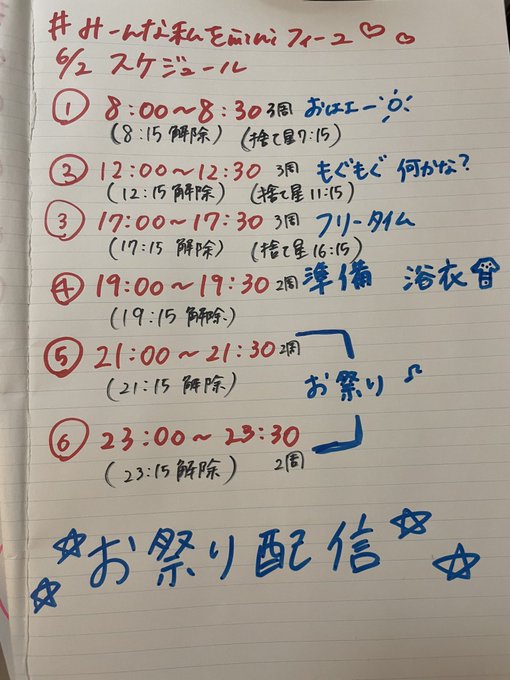 #みーんな私をminiフィーユ♡♡
6/2 スケジュール
① 8:00～8:30 3周 おはエー
(8:15 解除) (捨て星7:15)
② 12:00～12:30 3周 もぐもぐ 何かな?
(12:15 解除) (捨て星 11:15)
③ 17:00～17:30 3周 フリータイム
(17:15 解除) (捨て星 16:15)
④ 19:00～19:30 2周 準備 浴衣
(19:15 解除)
⑤ 21:00～21:30 2周
(21:15 解除)
お祭り♪
⑥ 23:00～23:30
(23:15 解除) 2周
☆お祭り配信☆
☆ ☆